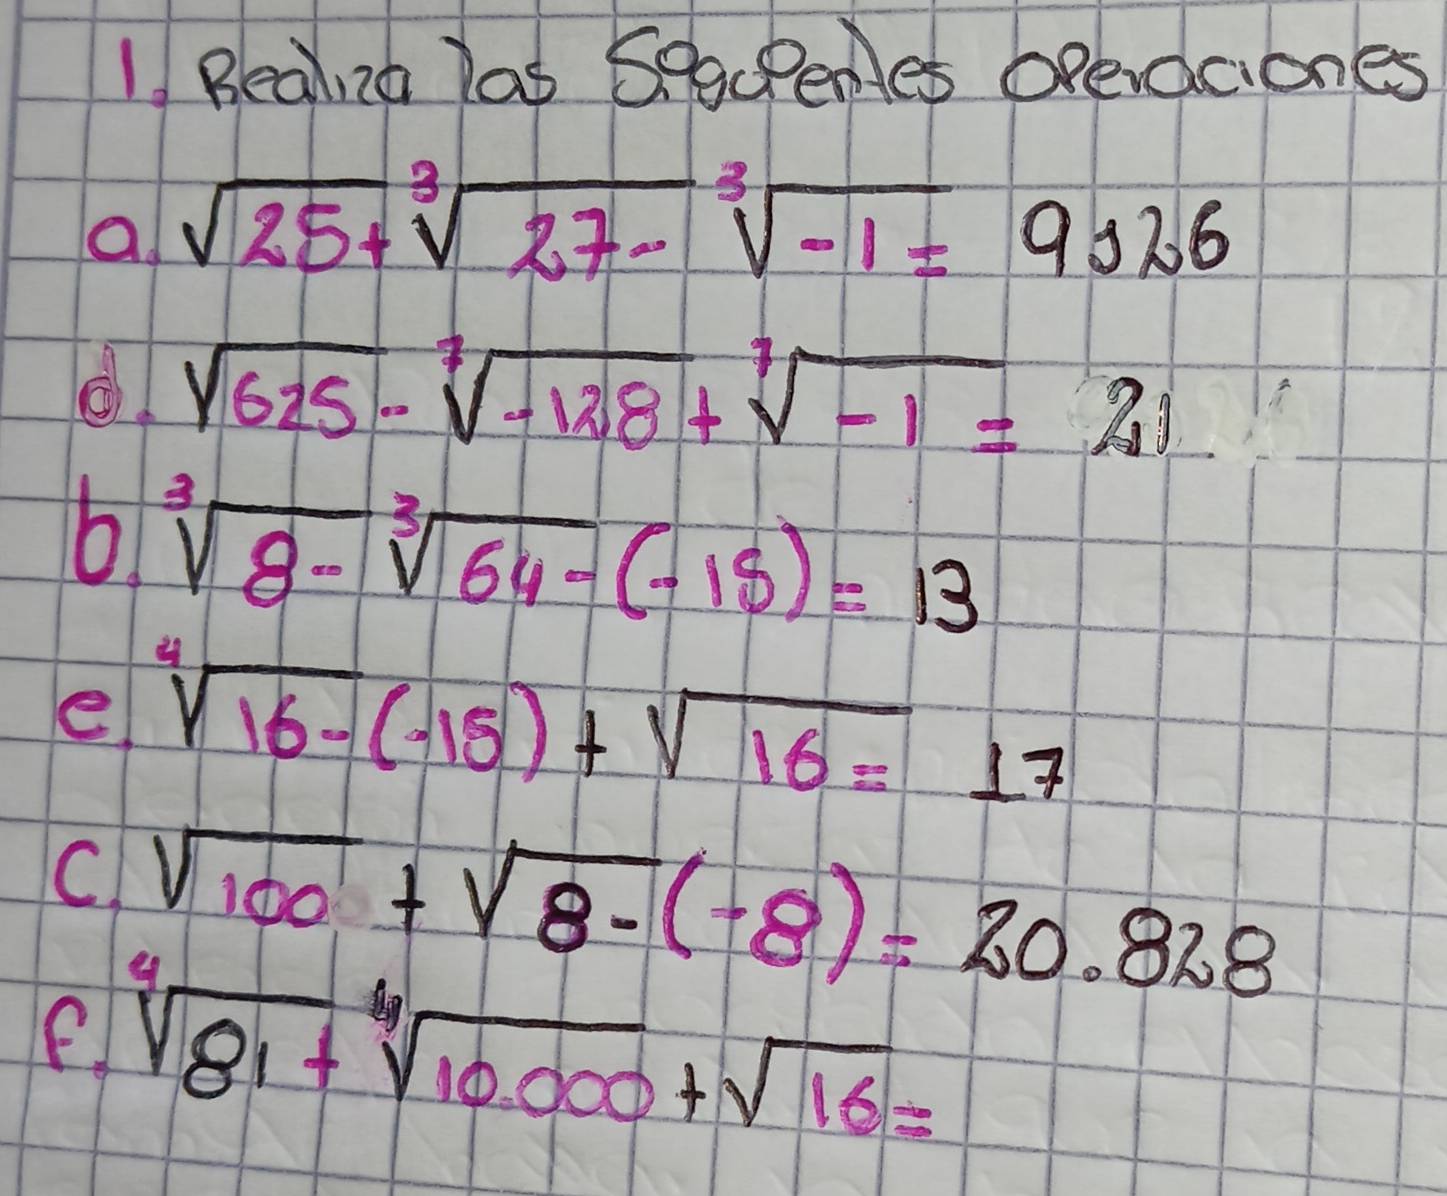 1. Realiza las Siguientes Operaciones
a. √25 + ³√27 - ³√-1 = 9,26
d. √625 - ⁷√-128 + ⁷√-1 = 21
b. ³√8 - ³√64 - (-15) = 13
e. ⁴√16 - (-15) + √16 = 17
c. √100 + √8 - (-8) = 20.828
f. ⁴√81 + ⁴√10.000 + √16 =